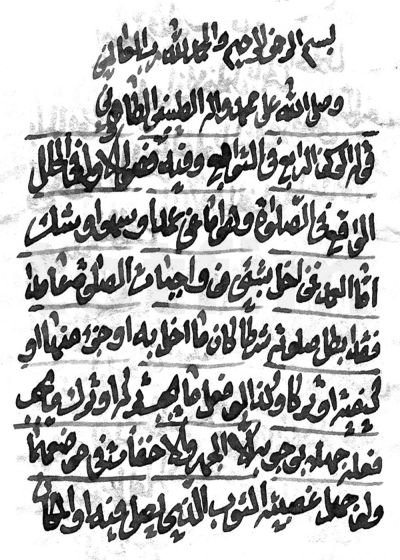 بسم الله الرحمن الرحيم والحمد لله رب العالمين
وصلى الله على محمد واله الطيبين الطاهرين
قوله الركن الرابع فى التوابع وفيه فصول الاول فى الخلل
الواقع فى الصلوة وهو اما عن عمد او سهو او شك
اما العمد فمن اخل بشئ من واجبات الصلوة عامدا
فقد ابطل صلوته شرطا كان ما اخل به او جزء منها او
كيفية او تركا وكذا لو فعل ما يجب تركه او ترك ما يجب
فعله جهلا بوجوبه الا الجهر والاخفات فى موضعهما
ولو جهل غصبية الثوب الذى يصلى فيه او المكان